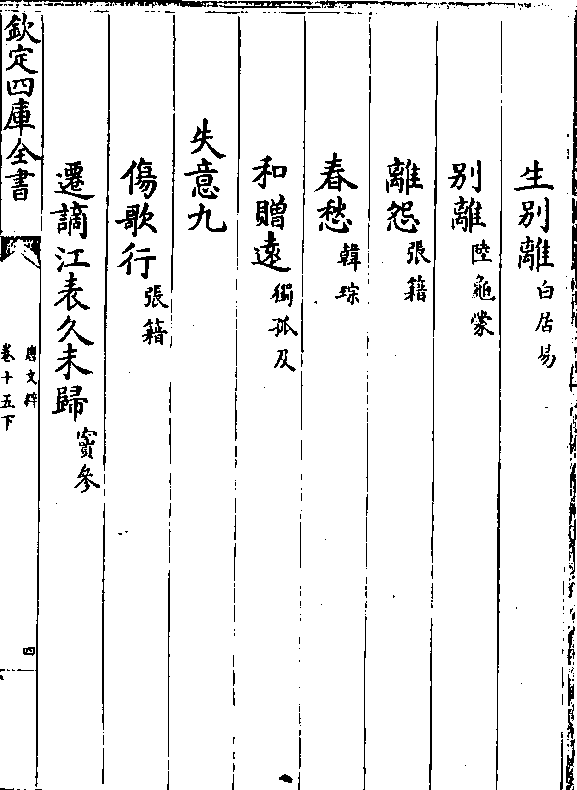 生别離白居易
别離陸龜蒙
離怨張籍
春愁韓琮
和贈遠獨孤及
失意九
傷歌行張籍
遷謫江表久未歸竇參
欽定四庫全書
唐文粹
卷十五下
四